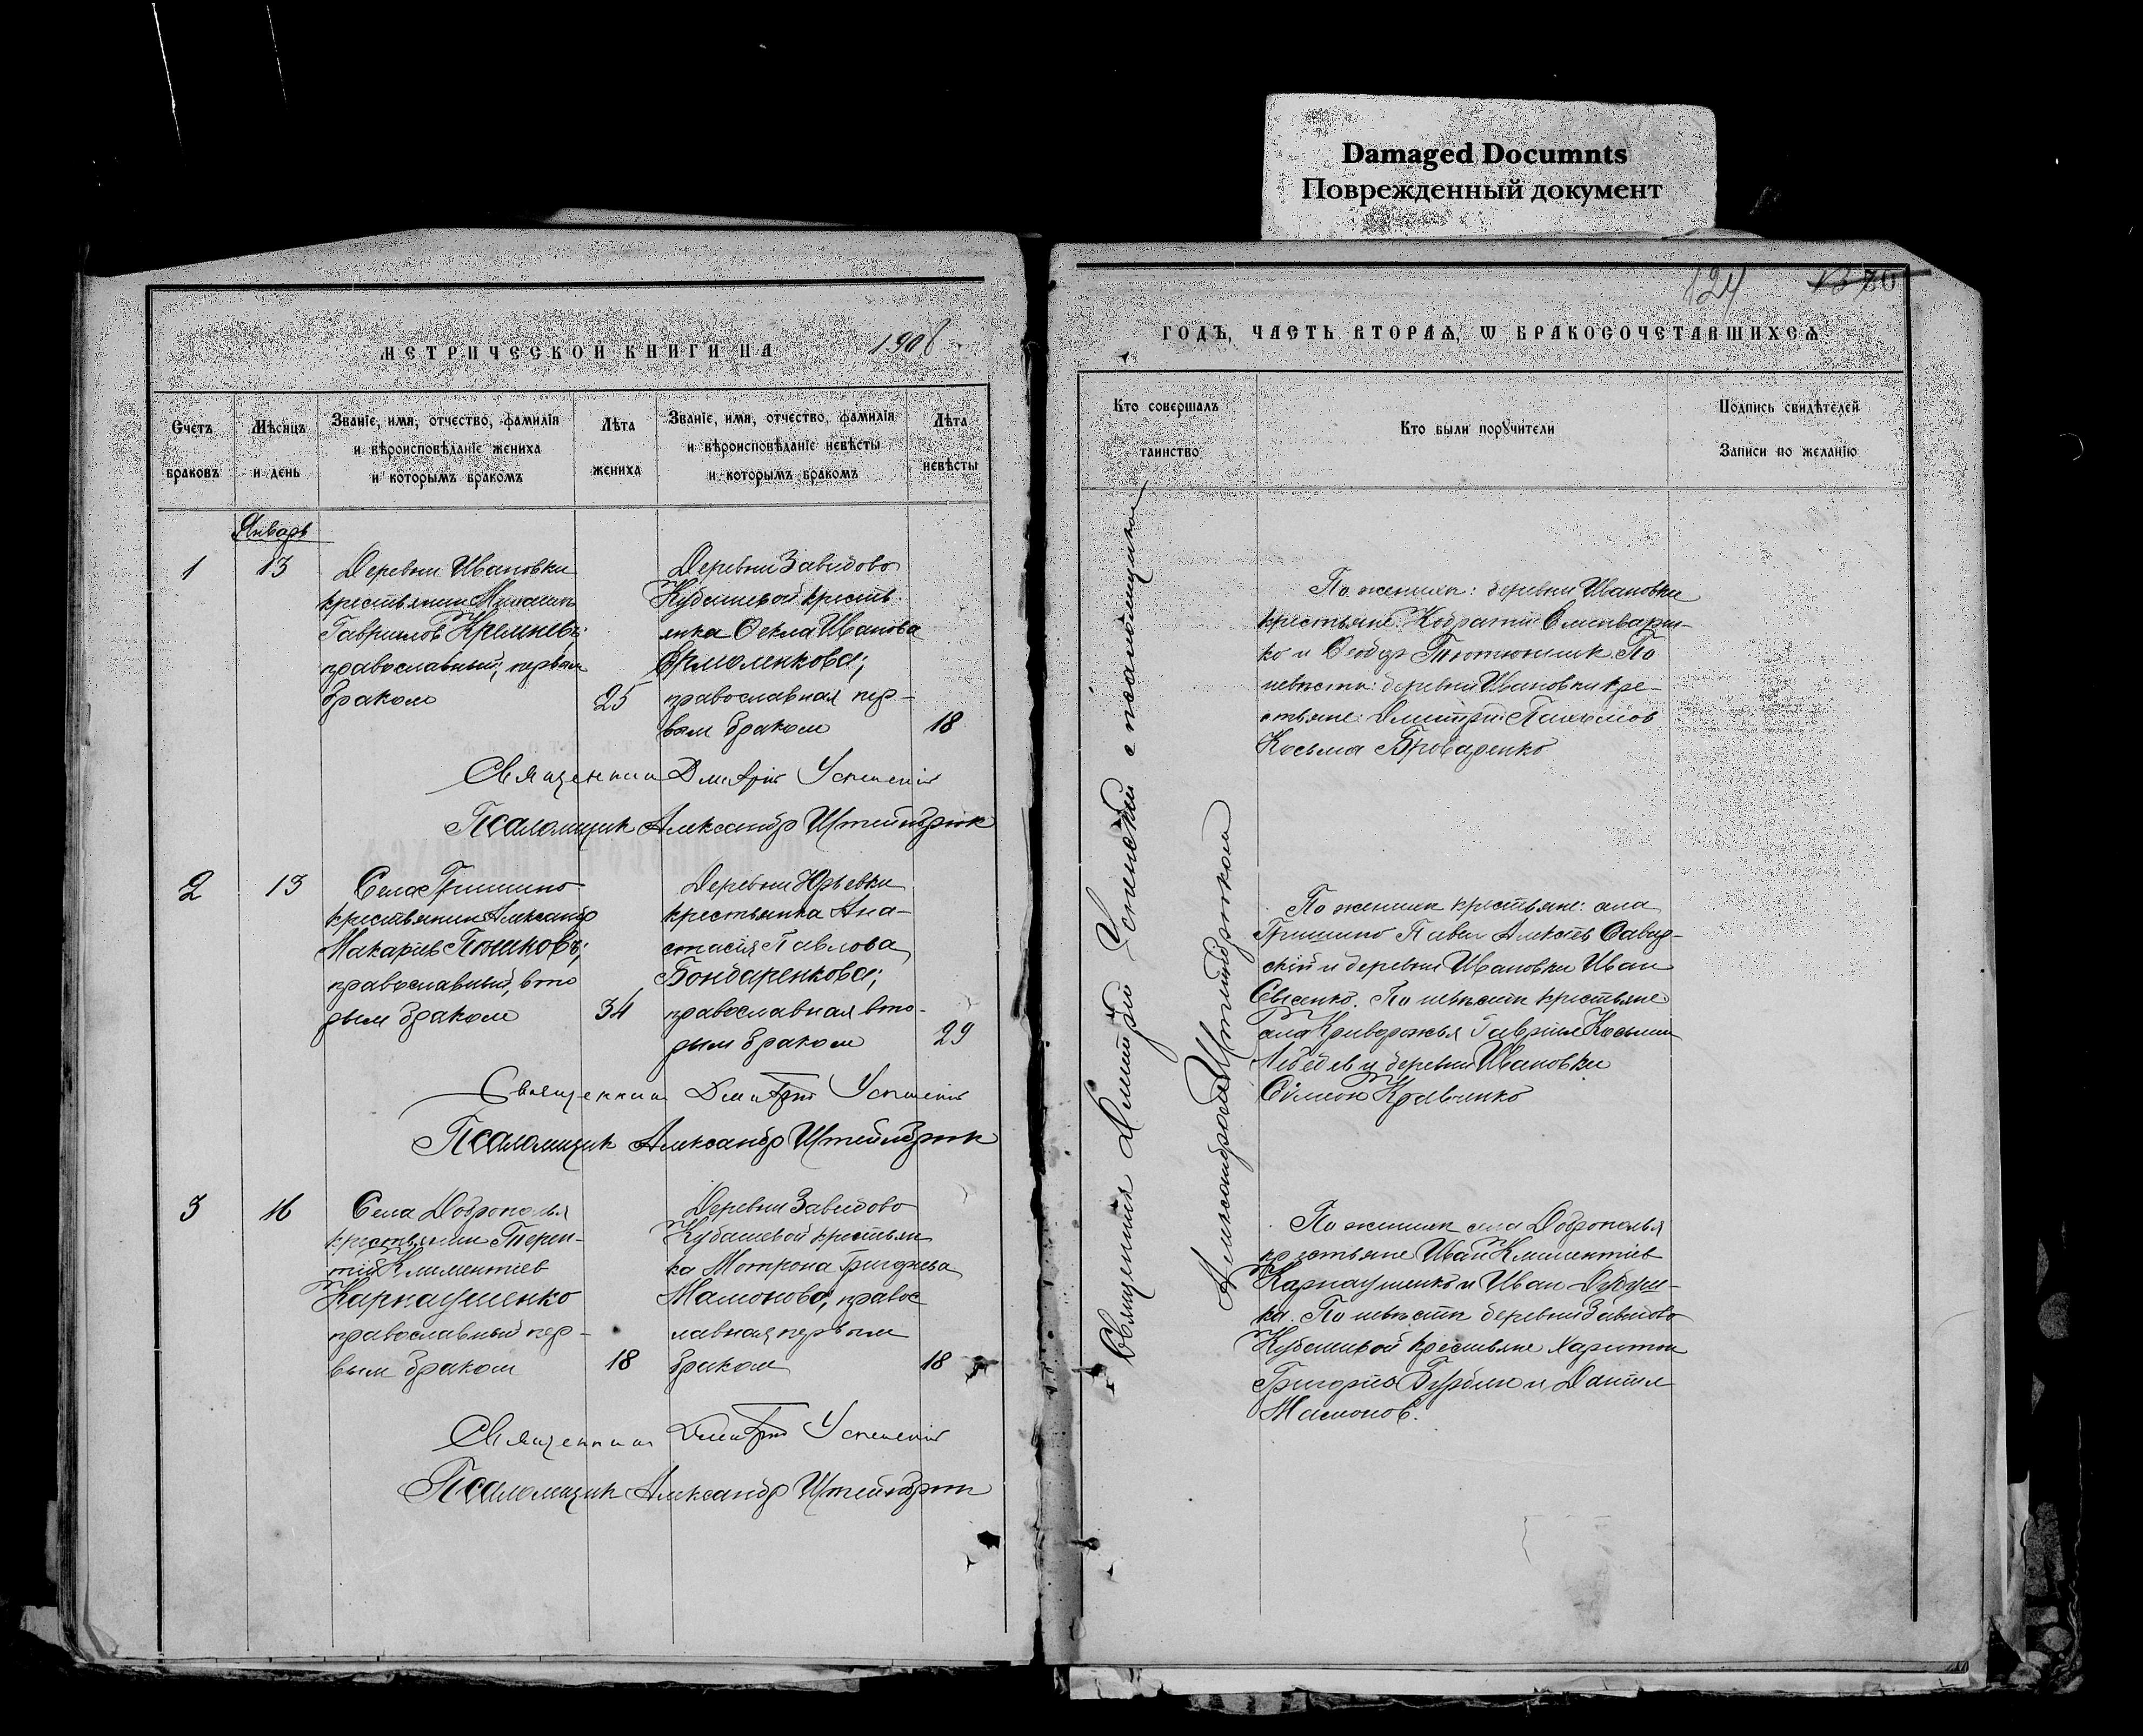 Damaged Documnts
Поврежденный документ
МЕТРИЧЕСКОЙ КНИГИ НА 1908
Счетъ браковъ
Мѣсяцъ и день
Званіе, имя, отчество, фамилія
и вѣроисповѣданіе жениха
и которымъ бракомъ
Лѣта жениха
Званіе, имя, отчество, фамилія
и вѣроисповѣданіе невѣсты
и которымъ бракомъ
Лѣта невѣсты
Январь
1
13
Деревни Ивановки
крестьянин
Гавриилов Кремневъ;
православный, первым
браком
25
Деревни Завидово
Кубашевой кресть-
янка Фекла Иванова
Ермоленкова;
православная пер-
вым браком
18
Священник Дмитрій Успенскій
Псаломщик Александр Штейнбрюк
2
13
Села Гришино
крестьянин Александр
Макаріев Поников;
православный, вто
рым браком
34
Деревни Юрьевки
крестьянка Ана-
стасія Павлова
Бондаренкова;
православная вто-
рым браком
29
Священник Дмитрій Успенскій
Псаломщик Александр Штейнбрюк
3
16
Села Доброполья
крестьянин Терен-
тій Климентіев
Карнаушенко
православный пер-
вым браком
18
Деревни Завидово
Кубашевой крестьян
ка Мотрона Григорьева
Мамонова, правос
лавная первым
браком
18
Священник Дмитрій Успенскій
Псаломщик Александр Штейнбрюк
124
ГОДЪ, ЧАСТЬ ВТОРАѦ, Ѡ БРАКОСОЧЕТАВШИХСѦ
Кто совершалъ таинство
Кто были порꙋчители
Подпись свидѣтелей
Записи по желанію
Священник Дмитрій Успенскій с псаломщиком
Александром Штейнбрюком
По жених: деревни Ивановки
крестьяне:
ко и Ѳеодор Тютюнник. По
невѣсти: деревни Ивановки кре-
стьяне: Дмитрій Пахомов
Косьма Броваренко
По жених крестьяне: села
Гришино Павел Алексѣев Савиц-
скій и деревни Ивановки Иван
По невѣсти крестьяне
села Криворожья Гавріил Косьмин
Лебедев и деревни Ивановки
Симеон Кравченко
По жених села Доброполья
крестьяне Иван Климентіев
Карнаушенко и Иван
ка. По невѣсти деревни Завидово
Кубашевой крестьяне Харитон
и Даніил
Мамонов.